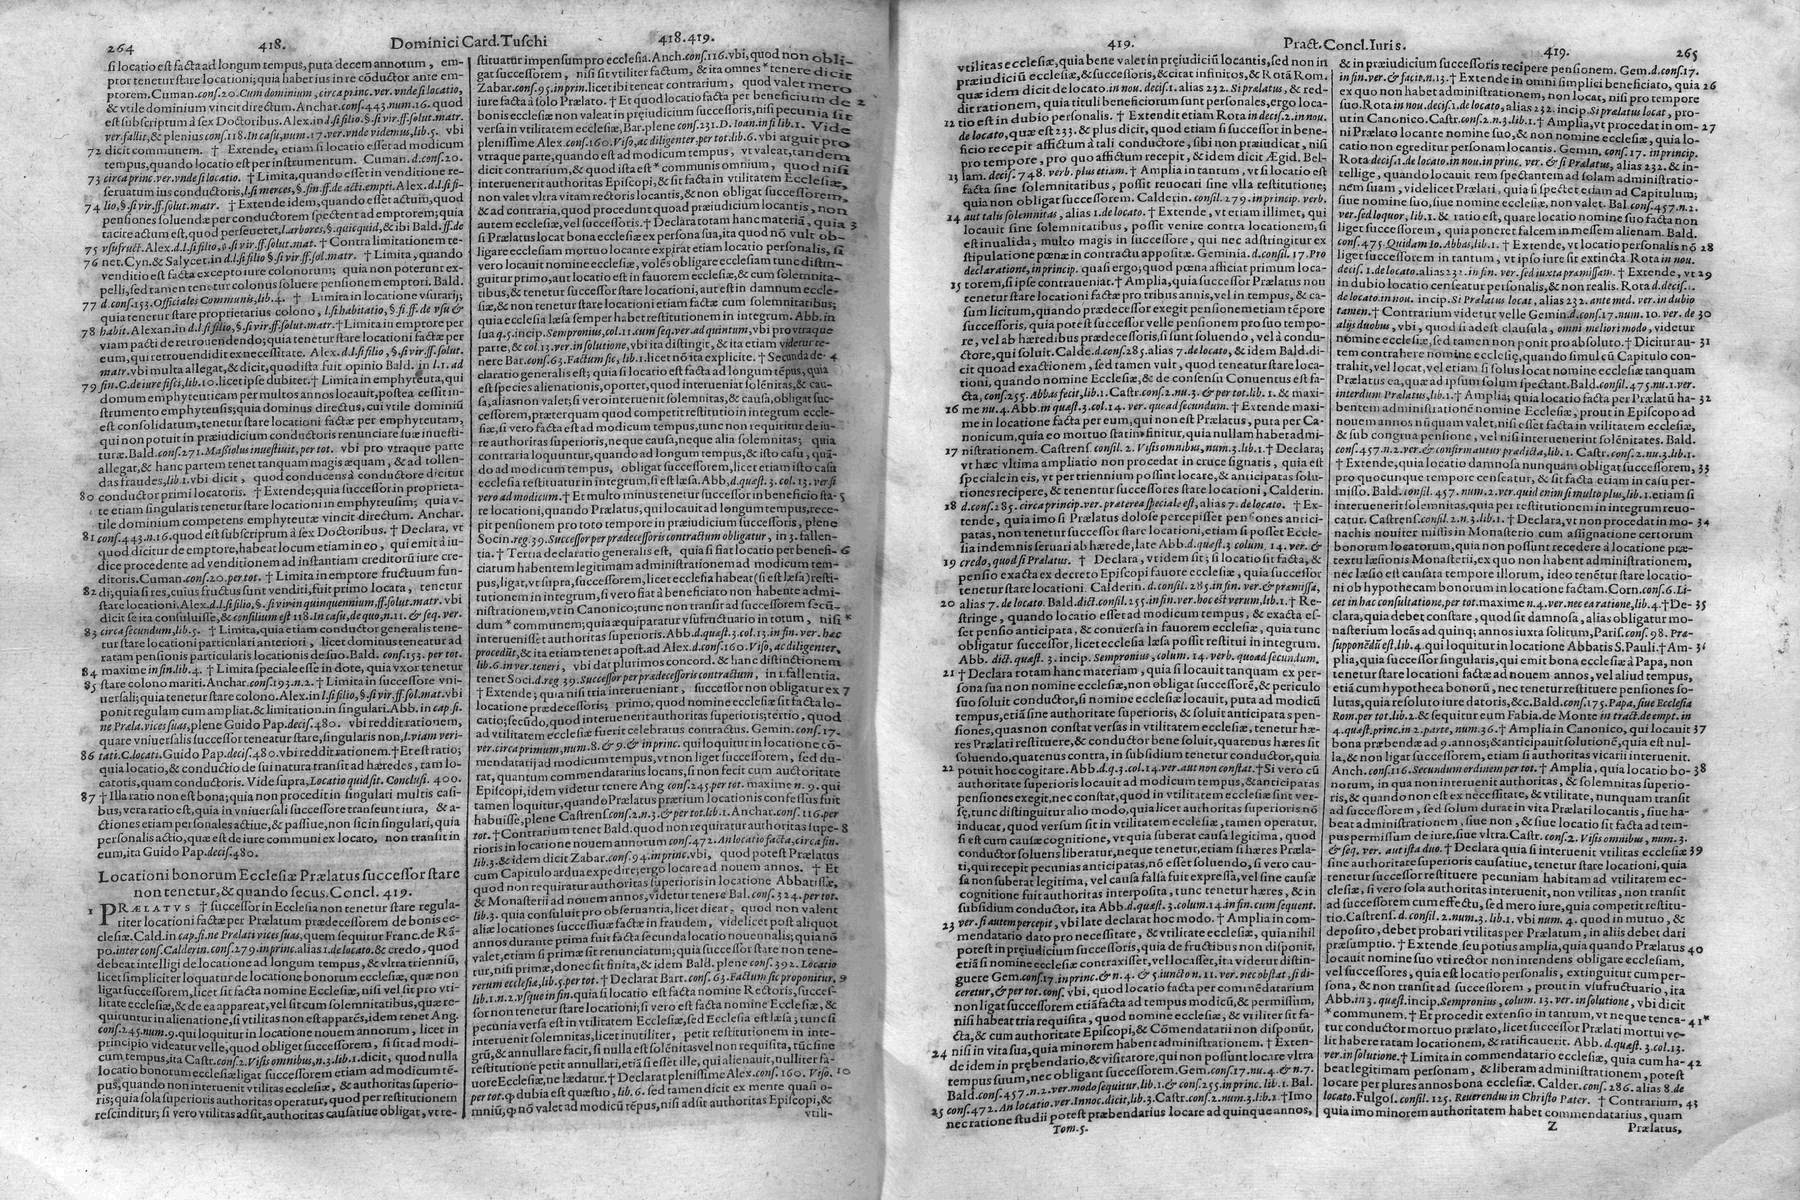 264
418.
Dominici Card. Tuschi
418.419.
si locatio est facta ad longum tempus, puta decem annorum, em-
ptor tenetur stare locationi; quia haber ius in re cōductor ante em-
ptorem. Cuman. conf. 20. Cum dominium, circa princ. ver. vnde si locatio,
& vtile dominium vincit directum. Anchar. conf. 443. num. 16. quod
est subscriptum à sex Doctoribus. Alex. in l. si filio, §. si vir. ff. solut. matr.
ver. fallit, & plenius conf. 118. In casu, num. 17. ver. vnde videmus, lib. 5. vbi
72 dicit communem. † Extende, etiam si locatio esset ad modicum
tempus, quando locatio est per instrumentum. Cuman. d. conf. 20.
73 circa princ. ver. vnde si locatio. † Limita, quando esset in venditione re-
seruatum ius conductoris, l. si merces, §. fin. ff. de acti. empti. Alex. d. l. si fi-
74 lio, §. si vir. ff. solut. matr. † Extende idem, quando esset actum, quod
pensiones soluendæ per conductorem spectent ad emptorem; quia
tacite actum est, quod perseueret, l. arbores, §. quicquid, & ibi Bald. ff. de
75 vsufruct. Alex. d. l. si filio, §. si vir. ff. solut. mat. † Contra limitationem te-
76 net. Cyn. & Salycet. in d. l. si filio §. si vir. ff. sol. matr. † Limita, quando
venditio est facta excepto iure colonorum; quia non poterunt ex-
pelli, sed tamen colonus soluere pensionem emptori. Bald.
77 d. conf. 153. Officiales Communis, lib. 4. † Limita in locatione vsurarij;
quia tenetur stare proprietarius colono, l. si habitatio, §. si ff. de vsu &
78 habit. Alexan. in d. l. si filio, §. si vir. ff. solut. matr. † Limita in emptore per
viam pacti de retrouendendo; quia tenetur stare locationi factæ per
eum, qui retrouendidit ex necessitate. Alex. d. l. si filio, §. si vir. ff. solut.
matr. vbi multa allegat, & dicit, quod ista fuit opinio Bald. in l. 1. ad
79 fin. C. de iure fisci, lib. 10. licet ipse dubitet. † Limita in emphyteuta, qui
domum emphyteuticam per multos annos locauit, postea cessit in-
strumento emphyteusis; quia dominus directus, cui vtile dominiū
est consolidatum, tenetur stare locationi factæ per emphyteutam,
qui non potuit in præiudicium conductoris renunciare suæ inuesti-
turæ. Bald. conf. 271. Massiolus inuestiuit, per tot. vbi pro vtraque parte
allegat, & hanc partem tenet tanquam magis æquam, & ad tollen-
das fraudes, lib. 1. vbi dicit, quod conducens à conductore dicitur
80 conductor primi locatoris. † Extende; quia successor in proprieta-
te etiam singularis tenetur stare locationi in emphyteusim; quia v-
tile dominium competens emphyteutæ vincit directum. Anchar.
81 conf. 443. n. 16. quod est subscriptum à sex Doctoribus. † Declara, vt
quod dicitur de emptore, habeat locum etiam in eo, qui emit à iu-
dice procedente ad venditionem ad instantiam creditorū iure cre-
ditoris. Cuman. conf. 20. per tot. † Limita in emptore fructuum fun-
82 di; quia si res, cuius fructus sunt venditi, fuit primo locata, tenetur
stare locationi. Alex. d. l. si filio, §. si vir in quinquennium, ff. solut. matr. vbi
dicit se ita consuluisse, & consilium est 118. In casu, de quo, n. 11. & seq. ver.
83 circa secundum, lib. 5. † Limita, quia etiam conductor generalis tene-
tur stare locationi particulari anteriori, licet dominus teneatur ad
ratam pensionis particularis locationis de suo. Bald. conf. 153. per tot.
84 maxime in fin. lib. 4. † Limita speciale esse in dote, quia vxor tenetur
85 stare colono mariti. Anchar. conf. 193. n. 2. † Limita in successore vni-
uersali; quia tenetur stare colono. Alex. in l. si filio, §. si vir, ff. sol. mat. vbi
ponit regulam cum ampliat. & limitation. in singulari. Abb. in cap. si-
ne Præla. vices suas, plene Guido Pap. decis. 480. vbi reddit rationem,
quare vniuersalis successor teneatur stare, singularis non, l. viam veri-
86 tati. C. locati. Guido Pap. decis. 480. vbi reddit rationem. † Et est ratio;
quia locatio, & conductio de sui natura transit ad hæredes, tam lo-
catoris, quam conductoris. Vide supra, Locatio quid sit. Conclusi. 400.
87 † Illa ratio non est bona; quia non procedit in singulari multis casi-
bus, vera ratio est, quia in vniuersali successore transeunt iura, & a-
ctiones etiam personales actiue, & passiue, non sic in singulari, quia
personalis actio, quæ est de iure communi ex locato, non transit in
eum, ita Guido Pap. decis. 480.
Locationi bonorum Ecclesiæ Prælatus successor stare
non tenetur, & quando secus. Concl. 419.
1 PRÆLATVS † successor in Ecclesia non tenetur stare regula-
riter locationi factæ per Prælatum prædecessorem de bonis ec-
clesiæ. Cald. in cap. si. ne Prælati vices suas, quem sequitur Franc. de Rā-
po. inter conf. Calderin. conf. 279. in princ. alias 1. de locato, & credo, quod
debeat intelligi de locatione ad longum tempus, & vltra trienniū,
licet simpliciter loquatur de locatione bonorum ecclesiæ, quæ non
ligat successorem, licet sit facta nomine Ecclesiæ, nisi vel sit pro vti-
litate ecclesiæ, & de ea appareat, vel sit cum solemnitatibus, quæ re-
quiruntur in alienatione, si vtilitas non est apparēs, idem tenet Ang.
conf. 245. num. 9. qui loquitur in locatione nouem annorum, licet in
principio videatur velle, quod obliget successorem, si sit ad modi-
cum tempus, ita Castr. conf. 2. Visis omnibus, n. 3. lib. 1. dicit, quod nulla
locatio bonorum ecclesiæ ligat successorem etiam ad modicum tē-
pus, quando non interuenit vtilitas ecclesiæ, & authoritas superio-
ris; quia sola superioris authoritas operatur, quod per restitutionem
rescinditur; si vero vtilitas adsit, authoritas causatiue obligat, vt re-
stituatur impensum pro ecclesia. Anch. conf. 116. vbi, quod non obli-
gat successorem, nisi sit vtiliter factum, & ita omnes * tenere dicit
Zabar. conf. 95. in prin. licet ibi teneat contrarium, quod valet mero
iure facta à solo Prælato. † Et quod locatio facta per beneficium de 2
bonis ecclesiæ non valeat in præiudicium successoris, nisi pecunia sit
versa in vtilitatem ecclesiæ, Bar. plene conf. 231. D. Ioan. in fi. lib. 1. Vide
plenissime Alex. conf. 160. Viso, ac diligenter. per tot. lib. 6. vbi arguit pro
vtraque parte, quando est ad modicum tempus, vt valeat, tandem
dicit contrarium, & quod ista est * communis omnium, quod nisi
interuenerit authoritas Episcopi, & sit facta in vtilitatem Ecclesiæ,
non valet vltra vitam rectoris locantis, & non obligat successorem,
& ad contraria, quod procedunt quoad præiudicium locantis, non
autem ecclesiæ, vel successoris. † Declara totam hanc materiā, quia 3
si Prælatus locat bona ecclesiæ ex persona sua, ita quod nō vult ob-
ligare ecclesiam mortuo locante expirat etiam locatio personalis, si
vero locauit nomine ecclesiæ, volēs obligare ecclesiam tunc distin-
guitur primo, aut locatio est in fauorem ecclesiæ, & cum solemnita-
tibus, & tenetur stare locationi, aut est in damnum eccle-
siæ, & non tenetur stare locationi etiam factæ cum solemnitatibus;
quia ecclesia læsa semper habet restitutionem in integrum. Abb. in
sua q. 5. incip. Sempronius, col. 11. cum seq. ver. ad quintum, vbi pro vtraque
parte, & col. 13. ver. in solutione, vbi ita distingit, & ita etiam videtur te-
nere Bar. conf. 63. Factum sic, lib. 1. licet nō ita explicite. † Secunda de- 4
claratio generalis est; quia si locatio est facta ad longum tēpus, quia
est species alienationis, oportet, quod interueniat solēnitas, & cau-
sa, alias non valet; si vero interuenit solemnitas, & causa, obligat suc-
cessorem, præterquam quod competit restitutio in integrum eccle-
siæ, si vero facta est ad modicum tempus, tunc non requiritur de iu-
re authoritas superioris, neque causa, neque alia solemnitas; quia
contraria loquuntur, quando ad longum tempus, & isto casu, quā-
do ad modicum tempus, obligat successorem, licet etiam isto casu
ecclesia restituatur in integrum, si est læsa. Abb. d. quæst. 3. col. 13. ver. si
vero ad modicum. † Et multo minus tenetur successor in beneficio sta- 5
re locationi, quando Prælatus, qui locauit ad longum tempus, rece-
pit pensionem pro toto tempore in præiudicium successoris, plene
Socin. reg. 39. Successor per prædecessoris contractum obligatur, in 3. fallen-
tia. † Tertia declaratio generalis est, quia si fiat locatio per benefi- 6
ciatum habentem legitimam administrationem ad modicum tem-
pus, ligat, vt supra, successorem, licet ecclesia habeat (si est læsa) resti-
tutionem in integrum, si vero fiat à beneficiato non habente admi-
nistrationem, vt in Canonico; tunc non transit in successorem secū-
dum * communem; quia æquiparatur vsufructuario in totum, nisi *
interuenisset authoritas superioris. Abb. d. quæst. 3. col. 13. in fin. ver. hæc
procedūt, & ita etiam tenet apost. ad Alex. d. conf. 160. Viso, ac diligenter,
lib. 6. in ver. teneri, vbi dat plurimos concord. & hanc distinctionem
tenet Soci. d. reg. 39. Successor per prædecessoris contractum, in 1. fallentia.
† Extende; quia nisi tria interueniant, successor non obligatur ex 7
locatione prædecessoris; primo, quod nomine ecclesiæ sit facta lo-
catio; secūdo, quod interuenerit authoritas superioris; tertio, quod
ad vtilitatem ecclesiæ fuerit celebratus contractus. Gemin. conf. 17.
ver. circa primum, num. 8. & 9. & in princ. qui loquitur in locatione cō-
mendatarij ad modicum tempus, vt non liget successorem, sed du-
rat, quantum commendatarius locans, si non fecit cum auctoritate
Episcopi, idem videtur tenere Ang. conf. 245. per tot. maxime n. 9. qui
tamen loquitur, quando Prælatus prætium locationis confessus fuit
habuisse, plene Castren. conf. 2. n. 3. & per tot. lib. 1. Anchar. conf. 116. per
tot. † Contrarium tenet Bald. quod non requiratur authoritas supe- 8
rioris in locatione nouem annorum conf. 472. An locatio facta, circa fin.
lib. 3. & idem dicit Zabar. conf. 94. in princ. vbi, quod potest Prælatus
cum Capitulo ardua expedire; ergo locare ad nouem annos. † Et
quod non requiratur authoritas superioris in locatione Abbatissæ,
& Monasterij ad nouem annos, videtur tenere Bal. conf. 324. per tot.
lib. 3. quia consuluit pro obseruantia, licet dicat, quod non valent
aliæ locationes successiue factæ in fraudem, videlicet post aliquot
annos durante prima fuit facta secunda locatio nouennalis; quia nō
valet, etiam si primæ sit renunciatum; quia successor stare non tene-
tur, nisi primæ, donec sit finita, & idem Bald. plene conf. 392. Locatio
rerum ecclesiæ, lib. 5. per tot. † Declarat Bart. conf. 63. Factum sic proponitur, 9
lib. 1. n. 2. vsque in fin. quia si locatio est facta nomine Rectoris, succes-
sor non tenetur stare locationi; si vero est facta nomine Ecclesiæ, &
pecunia versa est in vtilitatem Ecclesiæ, sed Ecclesia est læsa; tunc si
interuenit solemnitas, licet inutiliter, petit restitutionem in inte-
grū, & annullare facit, si nulla est solēnitas vel non requisita, tūc sine
restitutione petit annullari, etiā si esset ille, qui alienauit, nulliter fa-
uore Ecclesiæ, ne lædatur. † Declarat plenissime Alex. conf. 160. Viso, 10
per tot. φ dubia est quæstio, lib. 6. sed tamen dicit ex mente quasi o-
mniū, φ nō valet ad modicū tēpus, nisi adsit authoritas Episcopi, &
vtili-
419.
Pract. Concl. Iuris.
419.
265
vtilitas ecclesiæ, quia bene valet in preiudiciū locantis, sed non in
præiudiciū ecclesiæ, & successoris, & citat infinitos, & Rotā Rom.
quæ idem dicit de locato. in nou. decis. 1. alias 232. Si prælatus, & red-
dit rationem, quia tituli beneficiorum sunt personales, ergo loca-
12 tio est in dubio personalis. † Extendit etiam Rota in decis. 2. in nou.
de locato, quæ est 233. & plus dicit, quod etiam si successor in bene-
ficio recepit affictum à tali conductore, sibi non præiudicat, nisi
pro tempore, pro quo affictum recepit, & idem dicit Ægid. Bel-
13 lam. decis. 748. verb. plus etiam. † Amplia in tantum, vt si locatio est
facta sine solemnitatibus, possit reuocati sine vlla restitutione;
quia non obligat successorem. Calderin. conf. 279. in princip. verb.
14 aut talis solemnitas, alias 1. de locato. † Extende, vt etiam illimet, qui
locauit sine solemnitatibus, possit venire contra locationem, si
est inualida, multo magis in successore, qui nec adstringitur ex
stipulatione pœnæ in contractu appositæ. Geminia. d. conf. 17. Pro
declaratione, in princip. quasi ergo; quod pœna afficiat primum loca-
15 torem, si ipse contraueniat. † Amplia, quia successor Prælatus non
tenetur stare locationi factæ pro tribus annis, vel in tempus, & ca-
sum licitum, quando prædecessor exegit pensionem etiam tēpore
successoris, quia potest successor velle pensionem pro suo tempo-
re, vel ab hæredibus prædecessoris, si sunt soluendo, vel à condu-
ctore, qui soluit. Calde. d. conf. 285. alias 7. de locato, & idem Bald. di-
cit quoad exactionem, sed tamen vult, quod teneatur stare loca-
tioni, quando nomine Ecclesiæ, & de consensu Conuentus est fa-
cta, conf. 255. Abbas fecit, lib. 1. Castr. conf. 2. nu. 3. & per tot. lib. 1. & maxi-
16 me nu. 4. Abb. in quæst. 3. col. 14. ver. quoad secundum. † Extende maxi-
me in locatione facta per eum, qui non est Prælatus, puta per Ca-
nonicum, quia eo mortuo statim finitur, quia nullam habet admi-
17 nistrationem. Castrens. consil. 2. Visis omnibus, num. 3. lib. 1. † Declara;
vt hæc vltima ampliatio non procedat in cruce signatis, quia est
speciale in eis, vt per triennium possint locare, & anticipatas solu-
tiones recipere, & tenentur successores stare locationi, Calderin.
18 d. conf. 285. circa princip. ver. præterea speciale est, alias 7. de locato. † Ex-
tende, quia imo si Prælatus dolose percepisset pensiones antici-
patas, non tenetur successor stare locationi, etiam si posset Eccle-
sia indemnis seruari ab hærede, late Abb. d. quæst. 3. colum. 14. ver. &
19 credo, quod si Prælatus. † Declara, vt idem sit; si locatio sit facta, &
pensio exacta ex decreto Episcopi fauore ecclesiæ, quia successor
tenetur stare locationi. Calderin. d. conf. 285. in fin. ver. & præmissa,
20 alias 7. de locato. Bald. dict. conf. 255. in fin. ver. hoc est verum, lib. 1. † Re-
stringe, quando locatio esset ad modicum tempus, & exacta es-
set pensio anticipata, & conuersa in fauorem ecclesiæ, quia tunc
obligatur successor, licet ecclesia læsa possit restitui in integrum.
Abb. dict. quæst. 3. incip. Sempronius, colum. 14. verb. quoad secundum.
21 † Declara totam hanc materiam, quia si locauit tanquam ex per-
sona sua non nomine ecclesiæ, non obligat successorē, & periculo
suo soluit conductor, si nomine ecclesiæ locauit, puta ad modicum
tempus, etiā sine authoritate superioris, & soluit anticipatas pen-
siones, quas non constat versas in vtilitatem ecclesiæ, tenetur hæ-
res Prælati restituere, & conductor bene soluit, quatenus hæres sit
soluendo, quatenus contra, in subsidium tenetur conductor, quia
22 potuit hoc cogitare. Abb. d. q. 3. col. 14. ver. aut non constat. † Si vero cū
authoritate superioris locauit ad modicum tempus, & anticipatas
pensiones exegit, nec constat, quod in vtilitatem ecclesiæ sint ver-
sę, tunc distinguitur alio modo, quia licet authoritas superioris nō
inducat, quod versum sit in vtilitatem ecclesiæ, tamen operatur,
si est cum causæ cognitione, vt quia suberat causa legitima, quod
conductor soluens liberatur, neque tenetur, etiam si hæres Præla-
ti, qui recepit pecunias anticipatas, nō esset soluendo, si vero cau-
sa non suberat legitima, vel causa falsa fuit expressa, vel sine causæ
cognitione fuit authoritas interposita, tunc tenetur hæres, & in
subsidium conductor, ita Abb. d. quæst. 3. colum. 14. in fin. cum sequent.
23 ver. si autem percepit, vbi late declarat hoc modo. † Amplia in com-
mendatario dato pro necessitate, & vtilitate ecclesiæ, quia nihil
potest in preiudicium successoris, quia de fructibus non disponit,
etiā si nomine ecclesiæ contraxisset, vel locasset, ita videtur distin-
guere Gem. conf. 17. in princ. & n. 4. & 5. iuncto n. 11. ver. nec obstat, si di-
ceretur, & per tot. conf. vbi, quod locatio facta per commēdatarium
non ligat successorem etiā facta ad tempus modicū, & permissum,
nisi habeat tria requisita, quod nomine ecclesiæ, & vtiliter sit fa-
cta, & cum authoritate Episcopi, & Cōmendatarii non disponūt,
24 nisi in vita sua, quia minorem habent administrationem. † Exten-
de idem in prębendario, & visitatore, qui non possunt locare vltra
tempus suum, nec obligant successorem. Gem. conf. 17. nu. 4. & n. 7.
Bald. conf. 457. n. 2. ver. modo sequitur, lib. 1. & conf. 255. in princ. lib. 1. Bal.
25 conf. 472. An locatio, ver. Innoc. dicit, lib. 3. Castr. conf. 2. num. 3. lib. 1. † Imo
nec ratione studii potest præbendarius locare ad quinque annos,
Tom. 5.
& in præiudicium successoris recipere pensionem. Gem. d. conf. 17.
in fin. ver. & facit, n. 13. † Extende in omni simplici beneficiato, quia 26
ex quo non habet administrationem, non locat, nisi pro tempore
suo. Rota in nou. decis. 1. de locato, alias 232. incip. Si prælatus locat, pro-
ut in Canonico. Castr. conf. 2. n. 3. lib. 1. † Amplia, vt procedat in om- 27
ni Prælato locante nomine suo, & non nomine ecclesiæ, quia lo-
catio non egreditur personam locantis. Gemin. conf. 17. in princip.
Rota decis. 1. de locato. in nou. in princ. ver. & si Prælatus, alias 232. & in-
tellige, quando locauit rem spectantem ad solam administratio-
nem suam, videlicet Prælati, quia si spectet etiam ad Capitulum,
siue nomine suo, siue nomine ecclesiæ, non valet. Bal. conf. 457. n. 2.
ver. sed loquor, lib. 1. & ratio est, quare locatio nomine suo facta non
liget successorem, quia poneret falcem in messem alienam. Bald.
conf. 475. Quidam Io. Abbas, lib. 1. † Extende, vt locatio personalis nō 28
liget successorem in tantum, vt ipso iure sit extincta. Rota in nou.
decis. 1. de locato. alias 232. in fin. ver. sed iuxta præmissam. † Extende, vt 29
in dubio locatio censeatur personalis, & non realis. Rota d. decis. 1.
de locato. in nou. incip. Si Prælatus locat, alias 232. ante med. ver. in dubio
tamen. † Contrarium videtur velle Gemin. d. conf. 17. num. 10. ver. de 30
alijs duobus, vbi, quod si adest clausula, omni meliori modo, videtur
nomine ecclesiæ, sed tamen non ponit pro absoluto. † Dicitur au- 31
tem contrahere nomine ecclesię, quando simul cū Capitulo con-
trahit, vel locat, vel etiam si solus locat nomine ecclesiæ tanquam
Prælatus ea, quæ ad ipsum solum spectant. Bald. consil. 475. nu. 1. ver.
interdum Prælatus, lib. 1. † Amplia; quia locatio facta per Prælatū ha- 32
bentem administrationē nomine Ecclesiæ, prout in Episcopo ad
nouem annos nūquam valet, nisi esset facta in vtilitatem ecclesiæ,
& sub congrua pensione, vel nisi interuenirint solēnitates. Bald.
conf. 457. n. 2. ver. & confirmantur prædicta, lib. 1. Castr. conf. 2. nu. 3. lib. 1.
† Extende, quia locatio damnosa nunquam obligat successorem, 33
pro quocunque tempore censeatur, & sit facta in casu per-
misso. Bald. consil. 457. num. 2. ver. quid enim si multo plus, lib. 1. etiam si
interuenerit solemnitas, quia per restitutionem in integrum reuo-
catur. Castrens. consil. 2. n. 3. lib. 1. † Declara, vt non procedat in mo- 34
nachis nouiter missis in Monasterio cum assignatione certorum
bonorum locatorum, quia non possunt recedere à locatione præ-
textu læsionis Monasterii, ex quo non habent administrationem,
nec læsio est causata tempore illorum, ideo tenētur stare locatio-
ni ob hypothecam bonorum in locatione factam. Corn. conf. 6. Li-
cet in hac consultatione, per tot. maxime n. 4. ver. nec ea ratione, lib. 4. † De- 35
clara, quia debet constare, quod sit damnosa, alias obligatur mo-
nasterium locās ad quinq; annos iuxta solitum, Paris. conf. 98. Præ-
supponēdū est, lib. 4. qui loquitur in locatione Abbatis S. Pauli. † Am- 36
plia, quia successor singularis, qui emit bona ecclesiæ à Papa, non
tenetur stare locationi factæ ad nouem annos, vel aliud tempus,
etiā cum hypotheca bonorū, nec tenetur restituere pensiones so-
lutas, quia resoluto iure datoris, &c. Bald. conf. 175. Papa, siue Ecclesia
Rom. per tot. lib. 2. & sequitur eum Fabia. de Monte in tract. de empt. in
4. quæst. princ. in 2. parte, num. 36. † Amplia in Canonico, qui locauit 37
bona præbendæ ad 9. annos; & anticipauit solutionē, quia est nul-
la, & non ligat successorem, etiam si authoritas vicarii interuenit.
Anch. conf. 116. Secundum ordinem per tot. † Amplia, quia locatio bo- 38
norum, in qua non interuenit authoritas, & solemnitas superio-
ris, & quando non est ex necessitate, & vtilitate, nunquam transit
ad successorem, sed solum durat in vita Prælati locantis, siue ha-
beat administrationem, siue non, & siue locatio sit facta ad tem-
pus permissum de iure, siue vltra. Castr. conf. 2. Visis omnibus, num. 3.
& seq. ver. aut ista duo. † Declara quia si interuenit vtilitas ecclesiæ 39
sine authoritate superioris causatiue, tenetur stare locationi, quia
tenetur successor restituere pecuniam habitam ad vtilitatem ec-
clesiæ, si vero sola authoritas interuenit, non vtilitas, non transit
ad successorem cum effectu, sed mero iure, quia competit restitu-
tio. Castrens. d. consil. 2. num. 3. lib. 1. vbi num. 4. quod in mutuo, &
deposito, debet probari vtilitas per Prælatum, in aliis debet dari
præsumptio. † Extende seu potius amplia, quia quando Prælatus 40
locauit nomine suo vti rector non intendens obligare ecclesiam,
vel successores, quia est locatio personalis, extinguitur cum per-
sona, & non transit ad successorem, prout in vsufructuario, ita
Abb. in 3. quæst. incip. Sempronius, colum. 13. ver. in solutione, vbi dicit
* communem. † Et procedit extensio in tantum, vt neque tenea- 41*
tur conductor mortuo prælato, licet successor Prælati mortui ve-
lit habere ratam locationem, & ratificauerit. Abb. d. quæst. 3. col. 13.
ver. in solutione. † Limita in commendatario ecclesiæ, quia cum ha- 42
beat legitimam personam, & liberam administrationem, potest
locare per plures annos bona ecclesiæ. Calder. conf. 286. alias 8. de
locato. Fulgos. consil. 125. Reuerendus in Christo Pater. † Contrarium, 43
quia imo minorem authoritatem habet commendatarius, quam
Z
Prælatus,